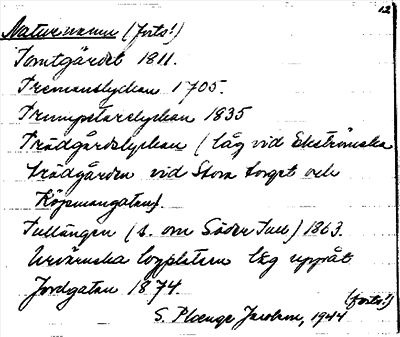 12
Naturnamn (forts!)
Tomtgärdet 1811.
Tremanslyckan 1705.
Trumpetarelyckan 1835
Trädgårdslyckan (låg vid Ekströmska
trädgården vid Stora torget och
Köpmangatan).
Tullängen (s. om Söder Tull) 1863.
tegelbruket låg uppåt
Jordgatan 1874.
(forts!)
S. Plœnge Jacobson, 1944